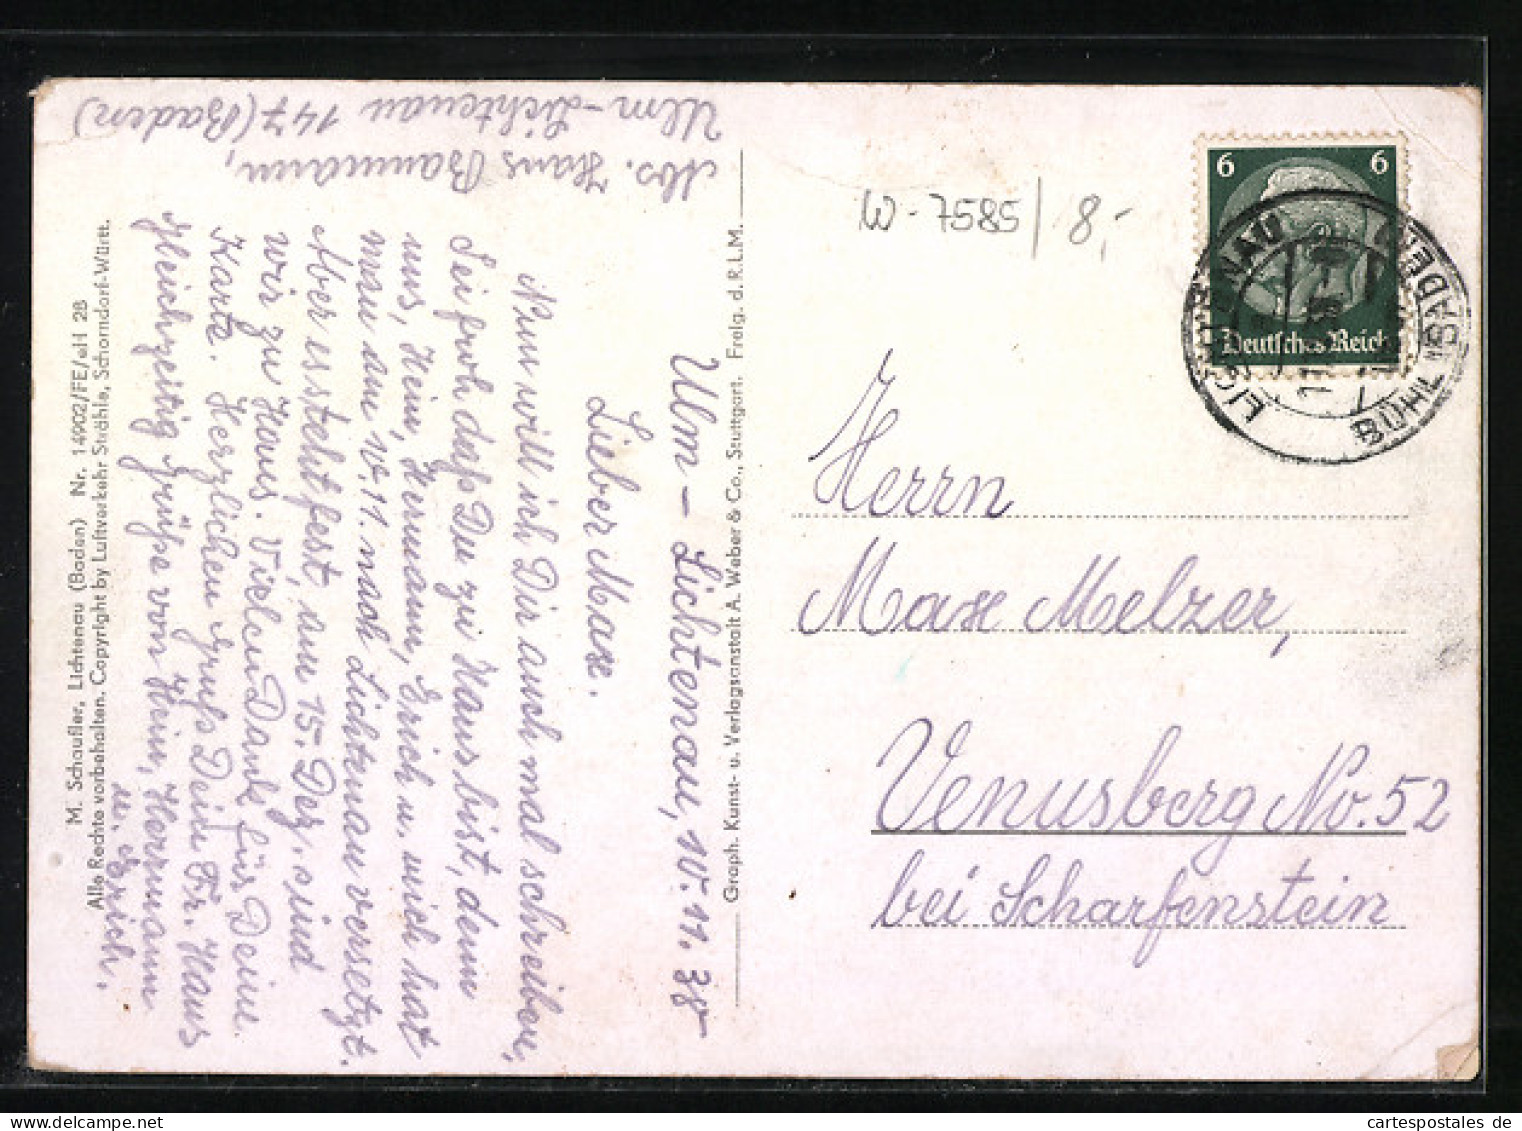 Abs. Hans Baumann,
Ulm-Lichtenau 147 (Baden)
Ulm - Lichtenau, 10.11.38
Lieber Max.
Nun will ich Dir auch mal schreiben,
Sei froh daß Du zu Haus bist, denn
uns, Hein, Hermann, Erich u. mich hat
man am 10.11. nach Lichtenau versetzt.
Aber es steht fest, am 15. Dez. sind
wir zu Haus. Vielen Dank für Deine
Karte. Herzlichen Gruß Dein Fr. Hans
Gleichzeitig Grüße von Hein, Hermann
u. Erich.
M. Schaufler, Lichtenau (Baden) Nr. 14902/FE/eH 28
Alle Rechte vorbehalten. Copyright by Luftverkehr Strähle, Schorndorf-Württ.
Graph. Kunst- u. Verlagsanstalt A. Weber & Co., Stuttgart. Freig. d. R.L.M.
W - 7585 / 8,-
6 6
Deutsches Reich
LICHTENAU
BÜHL (BADEN)
Herrn
Max Melzer,
Venusberg No. 52
bei Scharfenstein
www.cartespostales.de